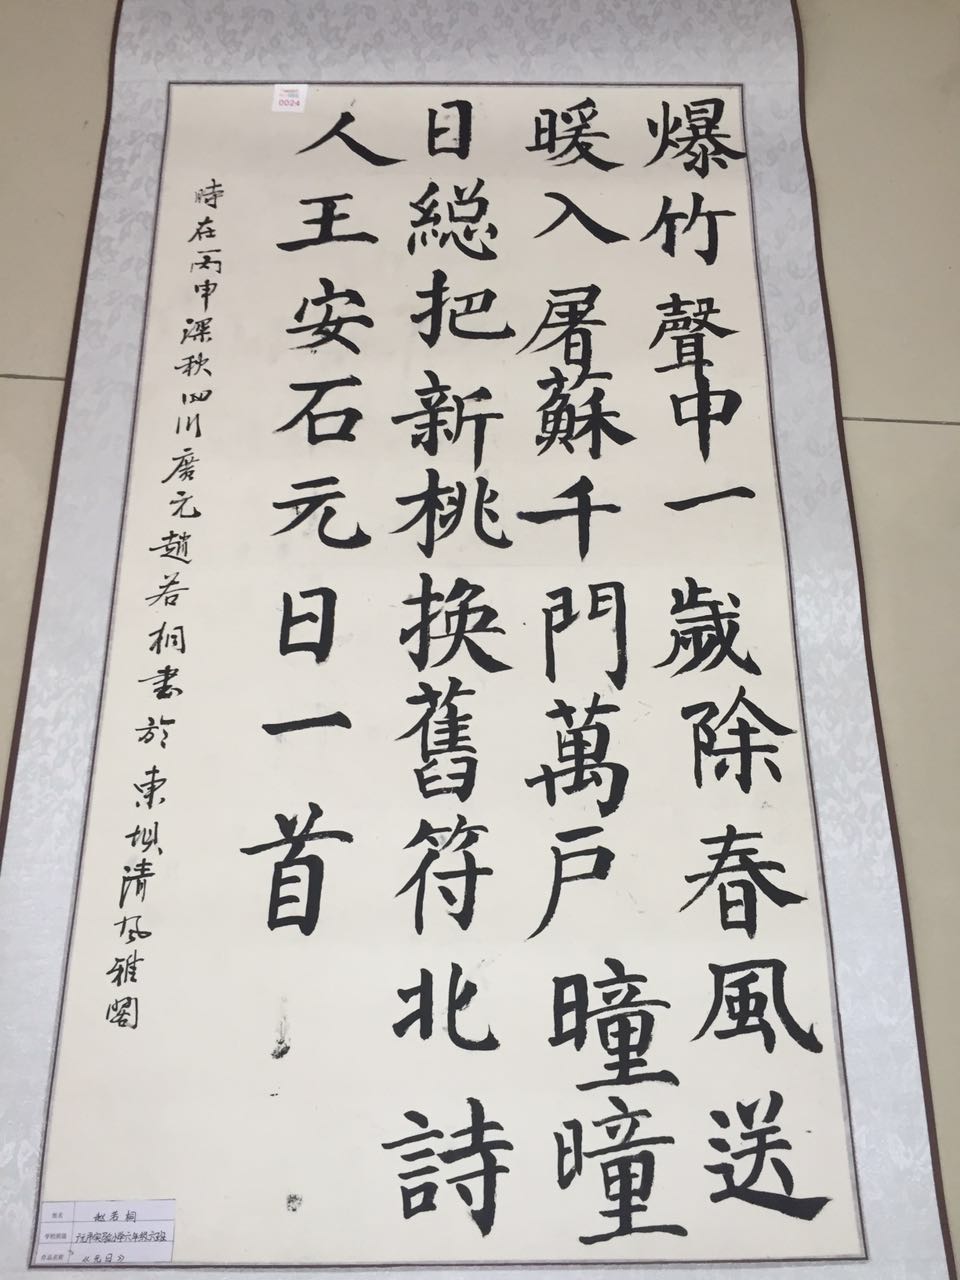 爆竹聲中一歲除春風送
暖入屠蘇千門萬戶曈曈
日総把新桃換舊符北詩
人王安石元日一首
時在丙申深秋四川广元趙若桐書於東坝清风雅閣
0024
姓名 赵若桐
学校班级 广元市实验小学六年级六班
作品名称 《元日》